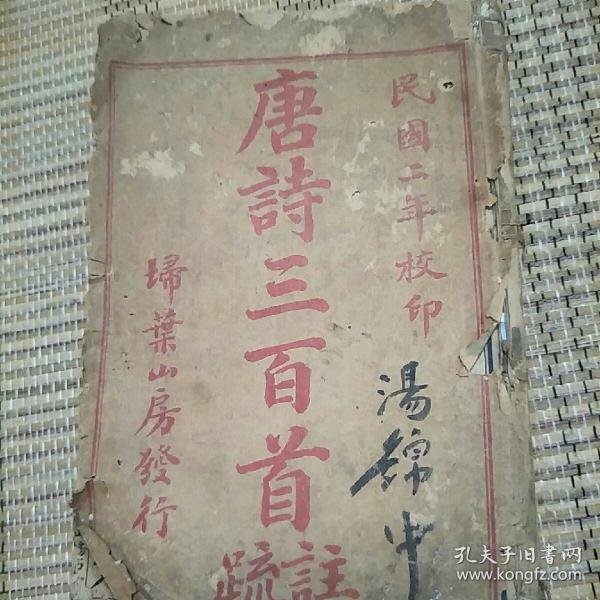 民國二年校印
唐詩三百首
註疏
埽葉山房發行
湯錦中
孔夫子旧书网
www.kongfz.com